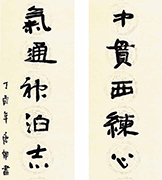 才貫西練心
氣通神泊志
丁酉年
書